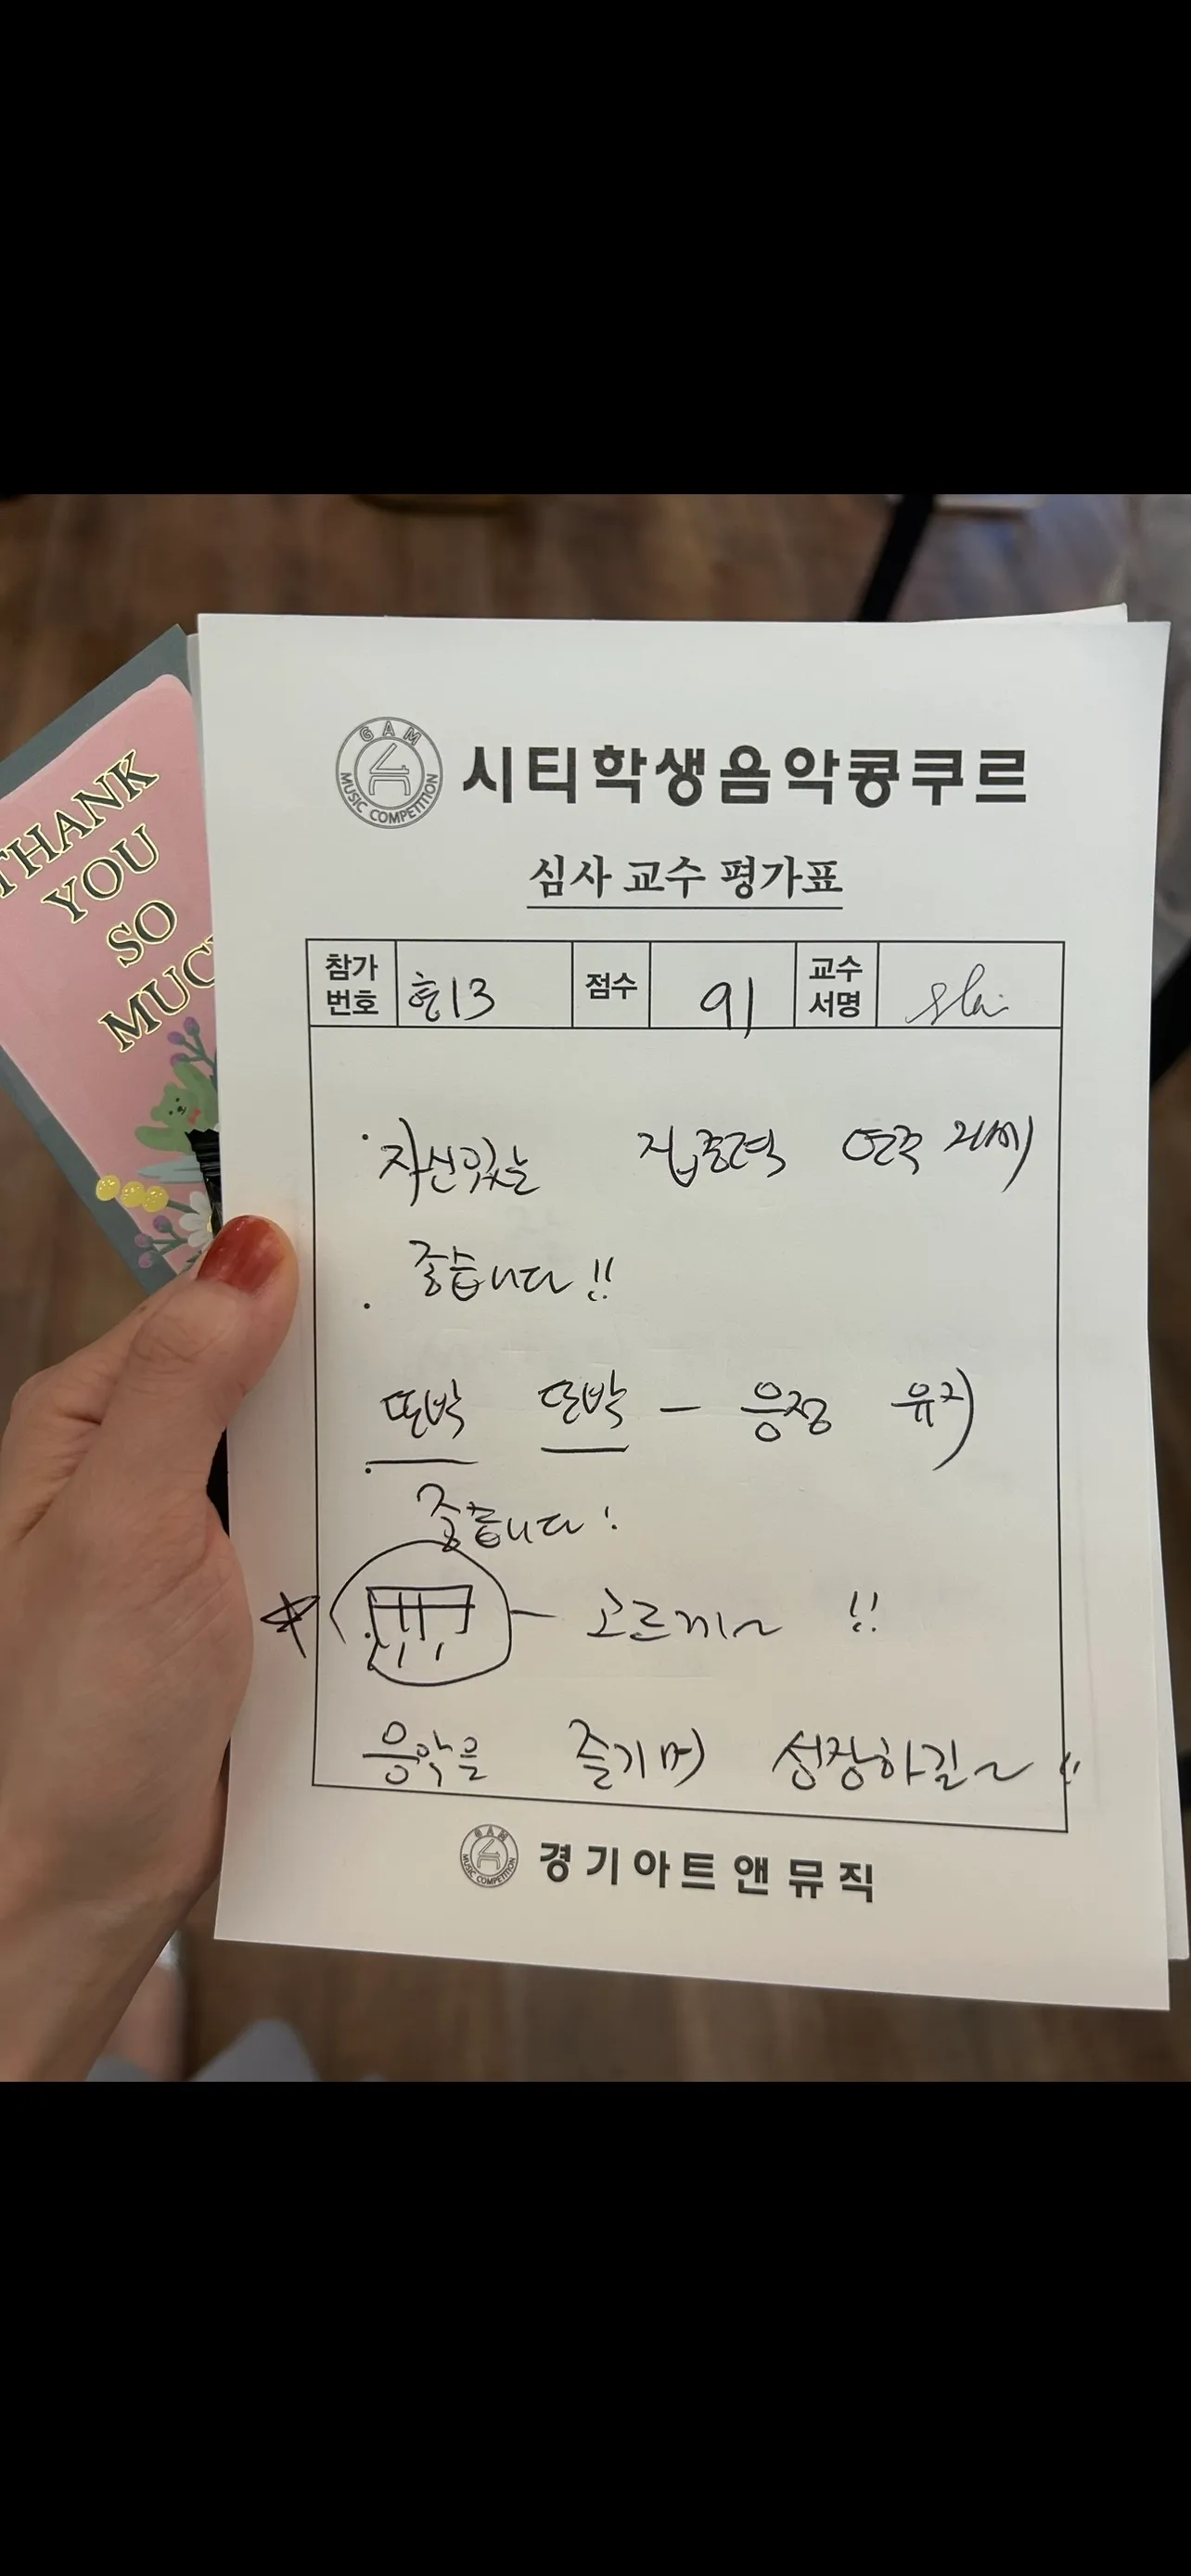 THANK
YOU
SO
MUC
GAM
MUSIC COMPETITION
시티학생음악콩쿠르
심사 교수 평가표
참가
번호
13
점수
91
교수
서명
자신있는 집중력 연주 자세
좋습니다!!
또박 또박 - 음정 유지
좋습니다!
고르게~ !!
음악을 즐기며 성장하길~!!
GAM
MUSIC COMPETITION
경기아트앤뮤직